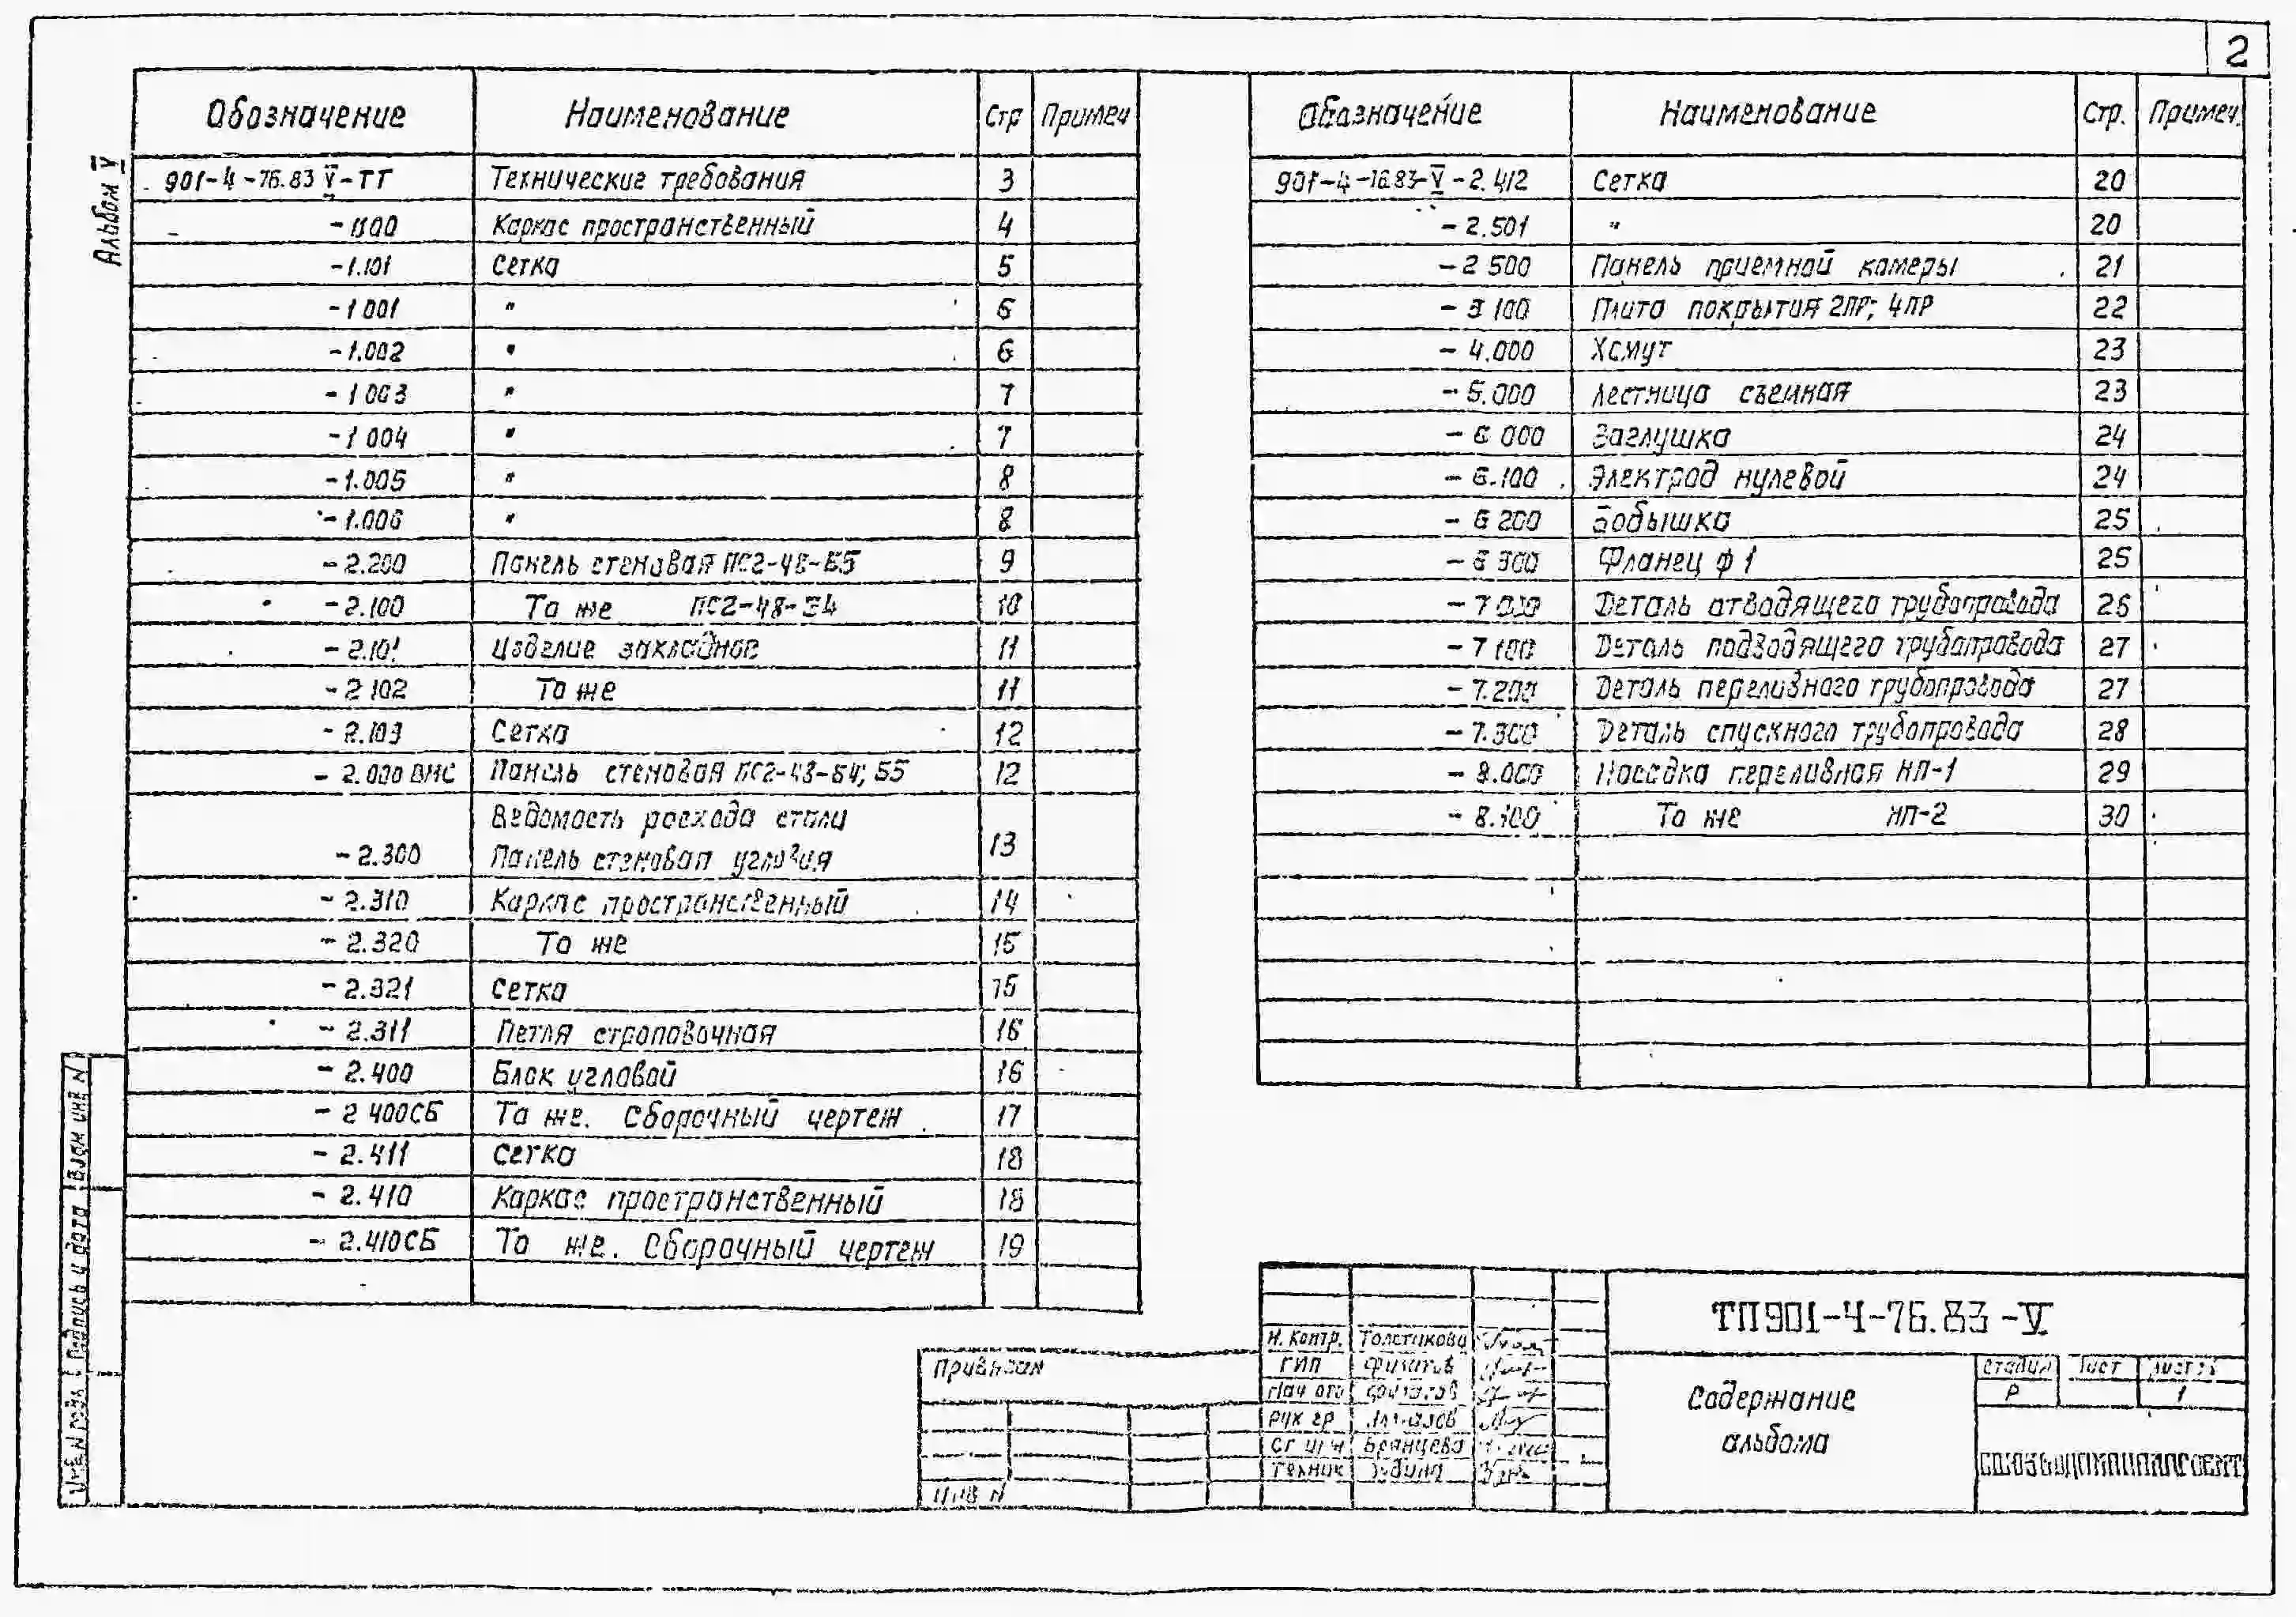 2
Альбом V
Обозначение Наименование Стр Примеч
901-4-76.83 V-ТТ Технические требования 3
Каркас пространственный 4
-1.101 Сетка 5
-1 001 " 6
-1.002 " 6
-1 003 " 7
-1 004 " 7
-1.005 " 8
-1.006 " 8
-2.200 Панель стеновая ПС2-48-Б5 9
-2.100 То же ПС2-48-Б4 10
-2.101 Изделие закладное 11
-2 102 То же 11
-2.103 Сетка 12
-2.000 ВМС Панель стеновая ПС2-48-Б4; Б5 12
Ведомость расхода стали
-2.300 Панель стеновая угловая 13
-2.310 Каркас пространственный 14
-2.320 То же 15
-2.321 Сетка 15
-2.311 Петля строповочная 16
-2.400 Блок угловой 16
-2 400СБ То же. Сборочный чертеж 17
-2.411 Сетка 18
-2.410 Каркас пространственный 18
-2.410СБ То же. Сборочный чертеж 19
Обозначение Наименование Стр. Примеч.
901-4-76.83-V-2.412 Сетка 20
-2.501 " 20
-2 500 Панель приемной камеры 21
-3 100 Плита покрытия 2ПР; 4ПР 22
-4.000 Хомут 23
-5.000 Лестница съемная 23
-6 000 Заглушка 24
-6.100 Электрод нулевой 24
-6 200 Бобышка 25
-6 300 Фланец ф 1 25
-7 000 Деталь отводящего трубопровода 26
-7 100 Деталь подводящего трубопровода 27
-7.200 Деталь переливного трубопровода 27
-7.300 Деталь спускного трубопровода 28
-8.000 Насадка переливная НП-1 29
-8.100 То же НП-2 30
Инв. N подл. Подпись и дата Взам инв N
Привязан
Инв N
Н. контр. Толстикова
ГИП Филатов
Нач отд Филатов
Рук гр
Ст инж Брянцева
Техник
ТП901-4-76.83-V
Содержание
альбома
Стадия Лист Листов
Р 1
СОЮЗВОДОКАНАЛПРОЕКТ